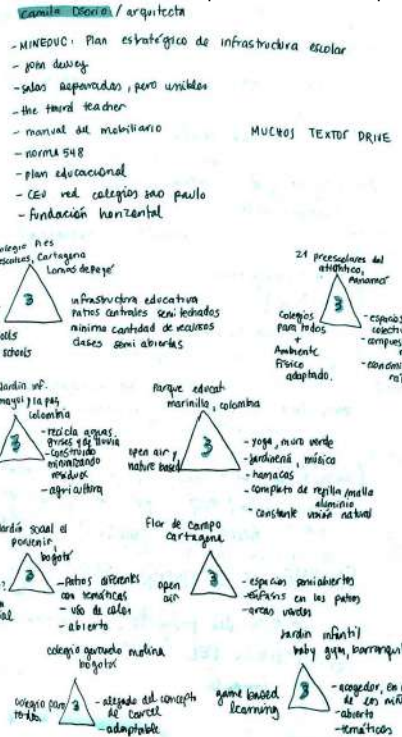 Camila Osorio / arquitecta
- MINEDUC: Plan estratégico de infrastructura escolar
- john dewey
- salas separadas, pero unibles
- the third teacher
- manual del mobiliario
MUCHOS TEXTOS DRIVE
- norma 548
- plan educacional
- CEU red colegios sao paulo
- fundación horizontal
Pies
Cartagena
Lomas de Peyé
3
infrastructura educativa
patios centrales semi techados
minima cantidad de recursos
clases semi abiertas
schools
21 preescolares del
atlántico,
3
Colegios
para todos
+
Ambiente
físico
adaptado.
- espacios
Jardin inf.
Colombia
3
- recicla aguas
grises y de lluvia
- construido
minimizando
residuos
- agricultura
Parque educat.
marinilla, colombia
open air y
nature based
3
- yoga, muro verde
- jardinería, música
- hamacas
- completo de rejilla/malla
aluminio
- constante visión natural
social el
porvenir
bogotá
3
- Patios diferentes
con temáticas
- uso de color
- abierto
Flor de campo
cartagena
open
air
3
- espacios semiabiertos
- enfasis en los patios
- areas verdes
colegio gerardo molina
bogotá
colegio para
todos
3
- alejado del concepto
de carcel
- adaptable
Jardin infantil
baby gym,
game based
learning
3
- acogedor, en
de los niñ
- abierto
- temáticas